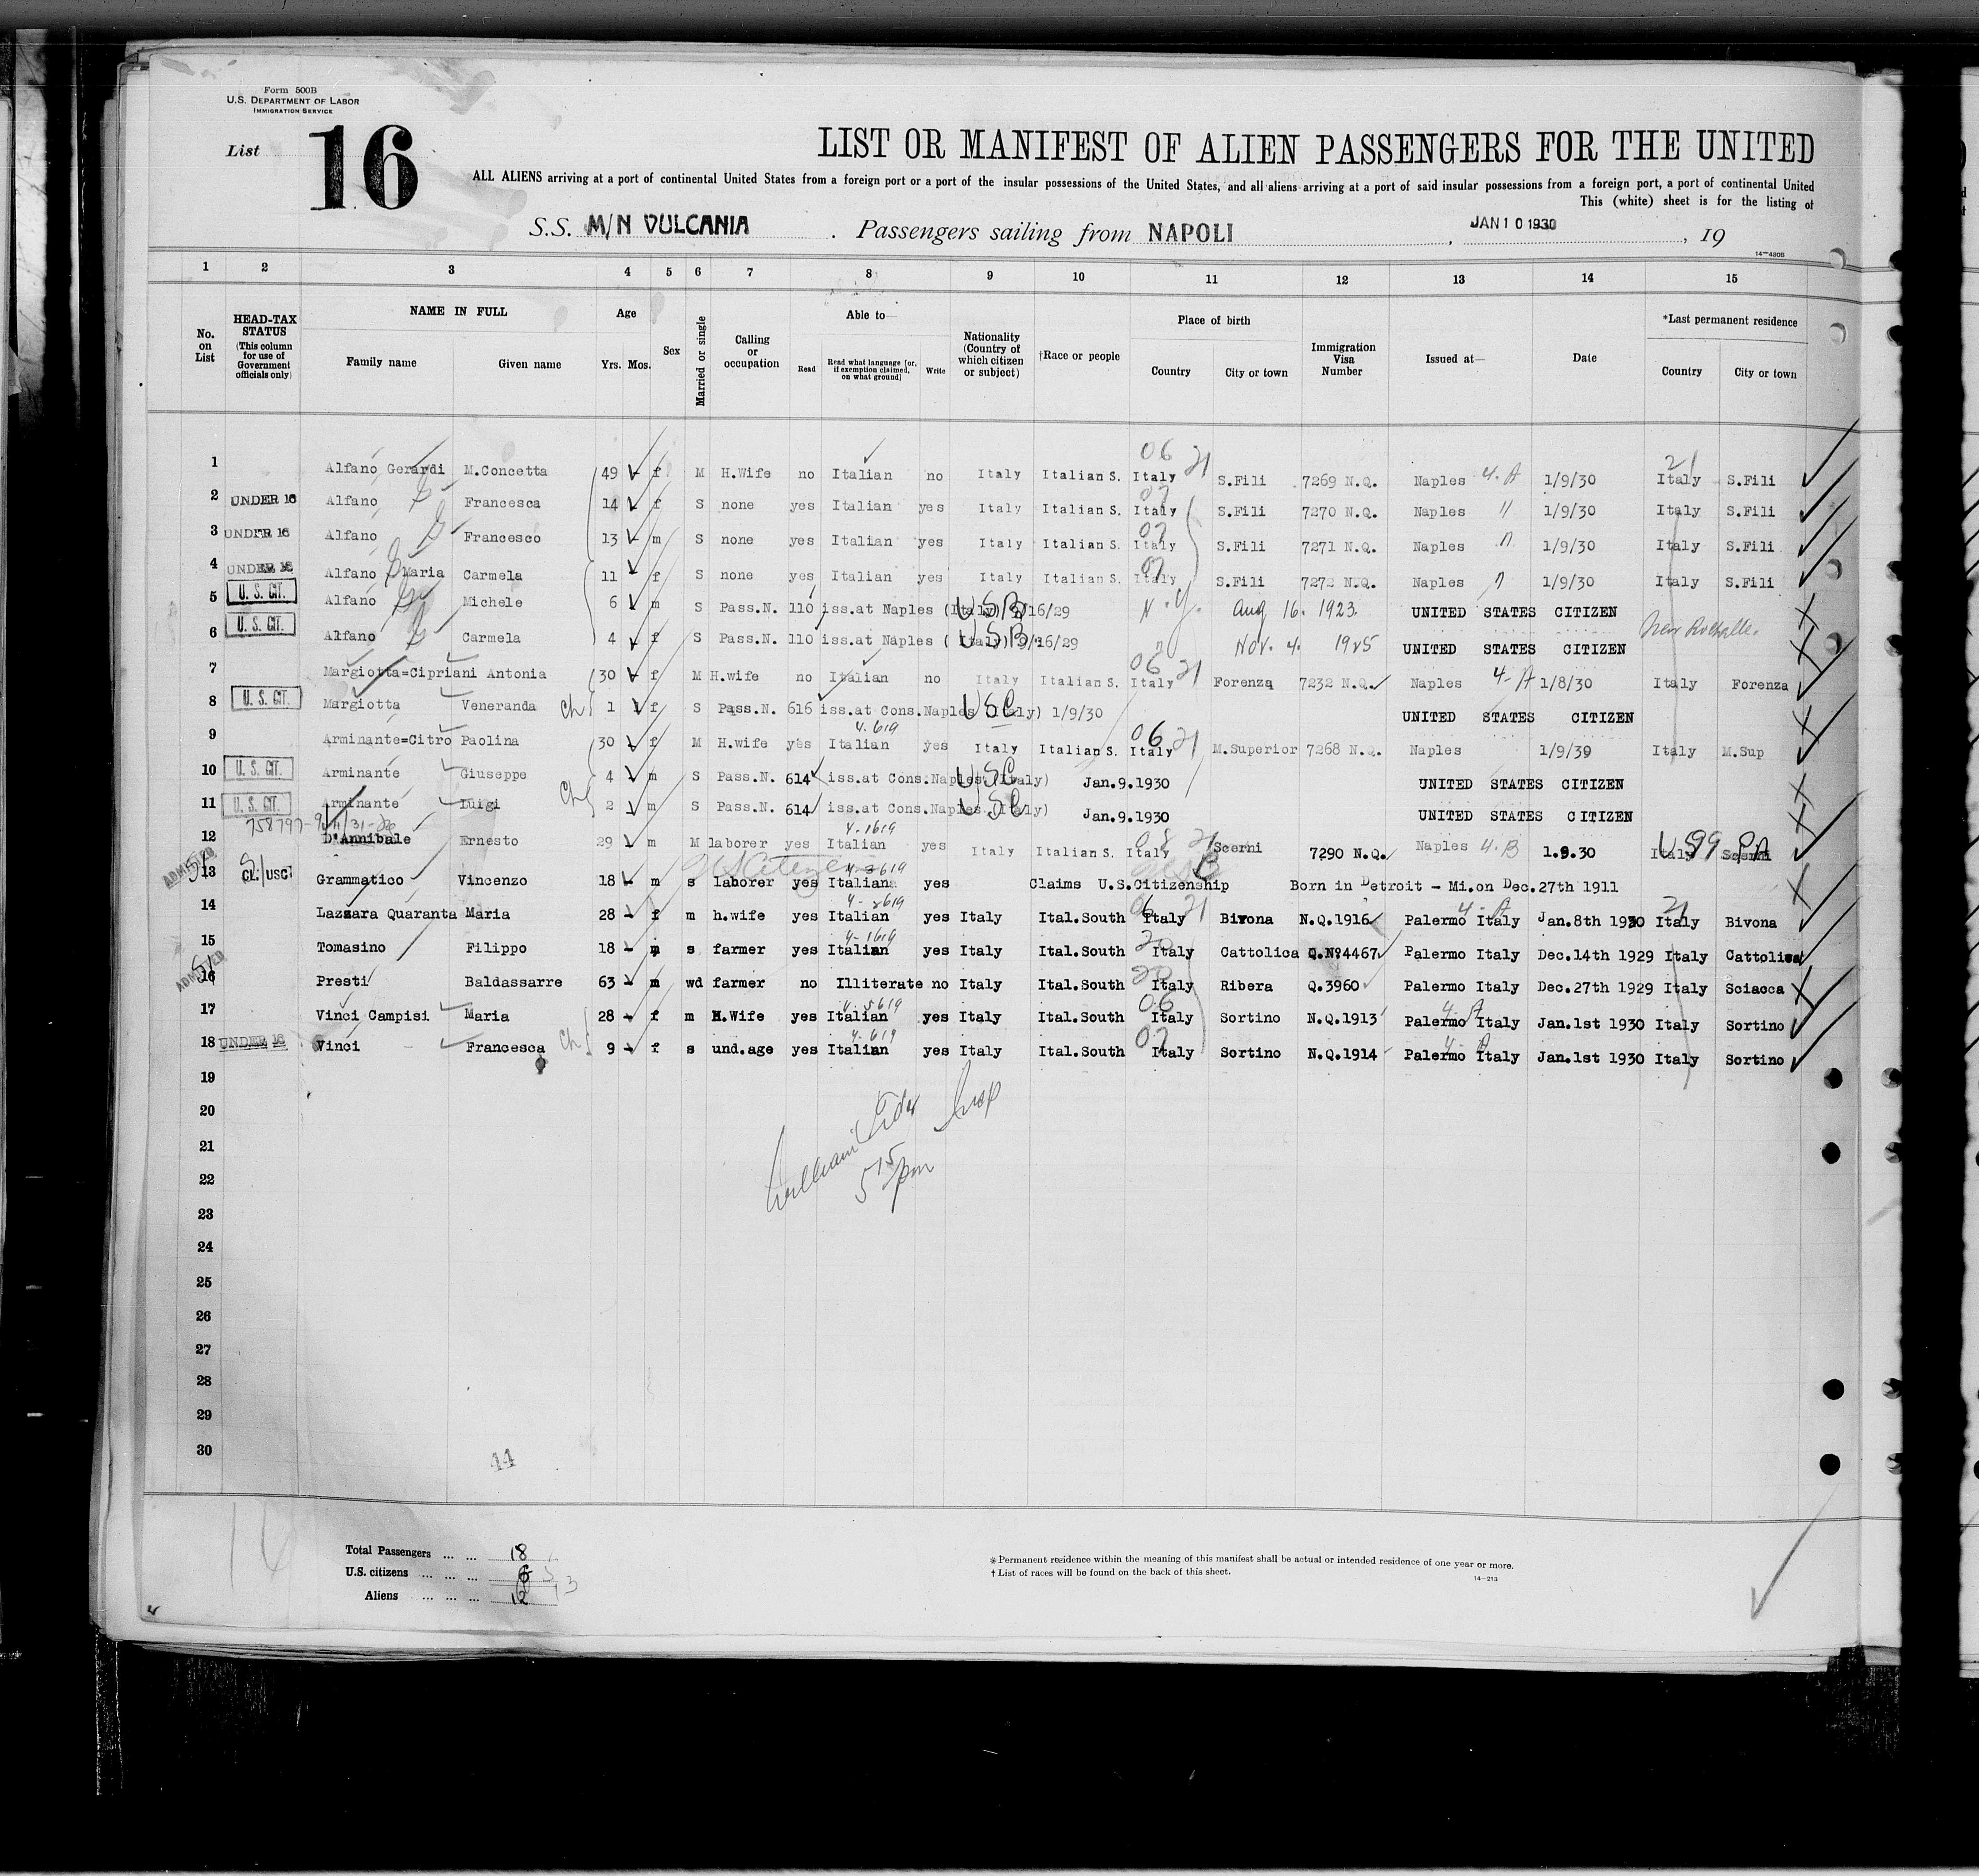 Form 500B
U.S. DEPARTMENT OF LABOR
IMMIGRATION SERVICE
List 16
LIST OR MANIFEST OF ALIEN PASSENGERS FOR THE UNITED
ALL ALIENS arriving at a port of continental United States from a foreign port or a port of the insular possessions of the United States, and all aliens arriving at a port of said insular possessions from a foreign port, a port of continental United
This (white) sheet is for the listing of
S.S. M/N VULCANIA . Passengers sailing from NAPOLI , JAN 10 1930 , 19
14—4806
1 2 3 4 5 6 7 8 9 10 11 12 13 14 15
No. on List HEAD-TAX STATUS (This column for use of Government officials only) NAME IN FULL Family name Given name Age Yrs. Mos. Sex Married or single Calling or occupation Able to— Read Read what language [or, if exemption claimed, on what ground] Write Nationality (Country of which citizen or subject) †Race or people Place of birth Country City or town Immigration Visa Number Issued at— Date *Last permanent residence Country City or town
1 Alfano Gerardi M.Concetta 49 f M H.Wife no Italian no Italy Italian S. 06 Italy 21 S.Fili 7269 N.Q. Naples 4-A 1/9/30 21 Italy S.Fili
2 UNDER 16 Alfano G Francesca 14 f S none yes Italian yes Italy Italian S. 07 Italy S.Fili 7270 N.Q. Naples " 1/9/30 Italy S.Fili
3 UNDER 16 Alfano G Francesco 13 m S none yes Italian yes Italy Italian S. 07 Italy S.Fili 7271 N.Q. Naples " 1/9/30 Italy S.Fili
4 UNDER 16 Alfano G Maria Carmela 11 f S none yes Italian yes Italy Italian S. 07 Italy S.Fili 7272 N.Q. Naples " 1/9/30 Italy S.Fili
5 U. S. CIT. Alfano G Michele 6 m S Pass.N. 110 iss.at Naples (Italy) /16/29 USB N.Y. Aug 16. 1923. UNITED STATES CITIZEN
6 U. S. CIT. Alfano G Carmela 4 f S Pass.N. 110 iss.at Naples ( Italy) /16/29 USB " Nov. 4. 1925 UNITED STATES CITIZEN New Rochelle.
7 Margiotta=Cipriani Antonia 30 f M H.wife no Italian no Italy Italian S. 06 Italy 21 Forenza 7232 N.Q. Naples 4-A 1/8/30 Italy Forenza
8 U. S. CIT. Margiotta Veneranda ch 1 f S Pass.N. 616 iss.at Cons.Naples (Italy) 1/9/30 USC UNITED STATES CITIZEN
9 Arminante=Citro Paolina 30 f M H.wife yes 4.619 Italian yes Italy Italian S. 06 Italy 21 M.Superior 7268 N.Q. Naples 1/9/30 Italy M.Sup
10 U. S. CIT. Arminante Giuseppe 4 m S Pass.N. 614 iss.at Cons.Naples (Italy) USC Jan.9.1930 UNITED STATES CITIZEN
11 U. S. CIT. Arminante Luigi ch 2 m S Pass.N. 614 iss.at Cons.Naples (Italy) USC Jan.9.1930 UNITED STATES CITIZEN
12 D'Annibale Ernesto 29 m M laborer yes 4.1619 Italian yes Italy Italian S. 08 Italy 21 Scerni 7290 N.Q. Naples 4-B 1.9.30 Italy Scerni US99 PA
ADMITTED SI
13 CL. USCT Grammatico Vincenzo 18 m s laborer yes Italian yes US Citizen Claims U.S.Citizenship Born in Detroit - Mi.on Dec.27th 1911
14 Lazzara Quaranta Maria 28 f m h.wife yes Italian yes Italy Ital.South 06 Italy 21 Bivona N.Q.1916 Palermo Italy 4-A Jan.8th 1930 21 Italy Bivona
15 Tomasino Filippo 18 m s farmer yes 4-1619 Italian yes Italy Ital.South 20 Italy Cattolica Q.Nº4467 Palermo Italy Dec.14th 1929 Italy Cattolica
ADMITTED SI
16 Presti Baldassarre 63 m wd farmer no Illiterate no Italy Ital.South 20 Italy Ribera Q.3960 Palermo Italy Dec.27th 1929 Italy Sciacca
17 Vinci Campisi Maria 28 f m H.Wife yes 4.5619 Italian yes Italy Ital.South 06 Italy Sortino N.Q.1913 Palermo Italy 4-A Jan.1st 1930 Italy Sortino
18 UNDER 16 Vinci Francesca ch 9 f s und.age yes 4.619 Italian yes Italy Ital.South 07 Italy Sortino N.Q.1914 Palermo Italy Jan.1st 1930 Italy Sortino
19
20
21
22
23
24
25
26
27
28
29
30
William Insp
515 pm
14
16
Total Passengers ... ... 18
U.S. citizens ... ... ... 6 5
Aliens ... ... ... 12 13
*Permanent residence within the meaning of this manifest shall be actual or intended residence of one year or more.
† List of races will be found on the back of this sheet.
14—213